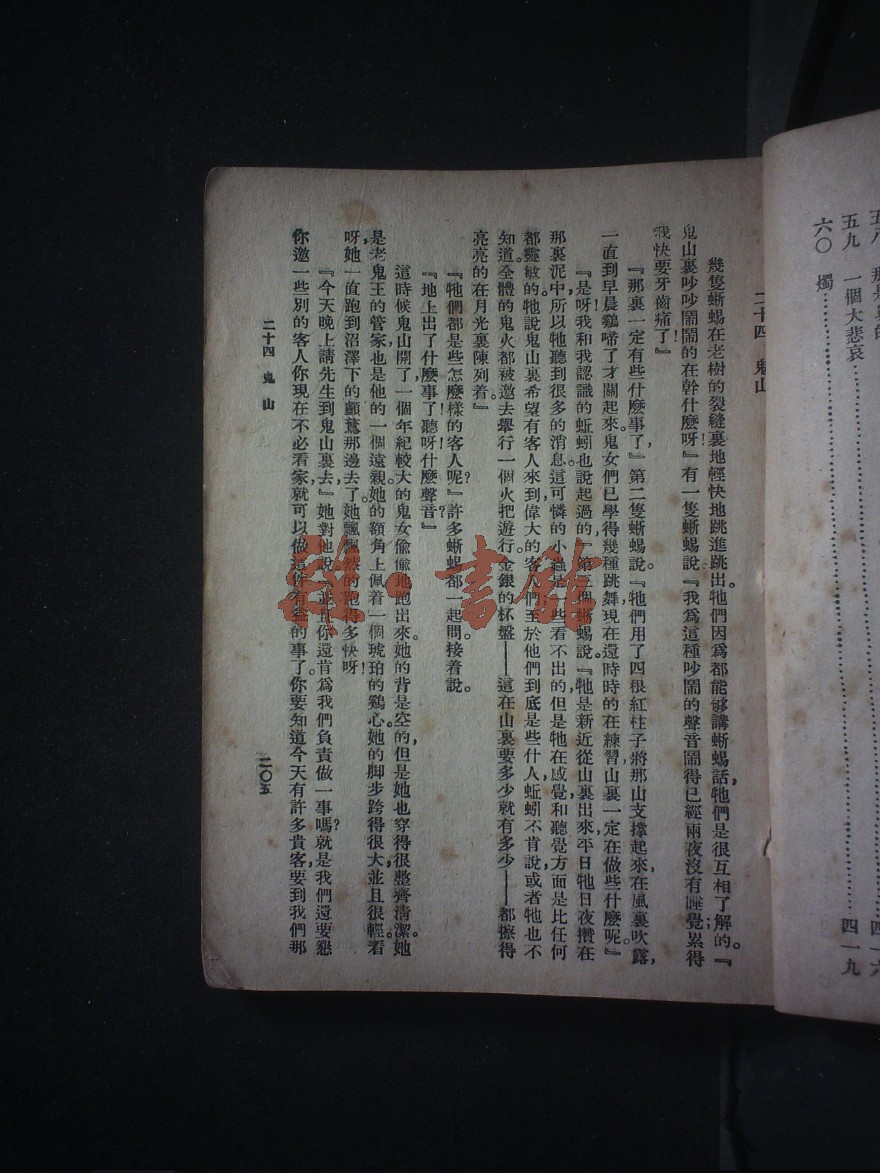 五九　一個大悲哀……………………四一九
六〇　燭……………………
二十四　鬼山
幾隻蜥蜴在老樹的裂縫裏地輕快地跳進跳出。牠們因爲都能够講蜥蜴話，牠們是很互相了解的。『
鬼山裏吵吵鬧鬧的在幹什麽呀！』有一隻蜥蜴說『我爲這種吵鬧的聲音鬧得已經兩夜沒有睡覺；累得
我快要牙齒痛了！』
『那裏一定有些什麽事了，』第二隻蜥蜴說。『牠們用了四根紅柱子將那山支撐起來，在風裏吹露，
一直到早晨鷄啼了才關起來。鬼女們已學得幾種跳舞，現在還時時的在練習，山裏一定在做些什麽呢。』
『是呀！我和我認識的蚯蚓也說起過的，』第三個蜥蜴說。『牠是新近從山裏出來，平日牠日夜攢在
那裏泥中，所以牠聽到很多的消息。這可憐的小蟲是一些看不出的，但是牠在感覺和聽覺方面是比任何
都靈敏的。牠說鬼山裏希望有客人來到，偉大的客人們至於他們到底是些什人，蚯蚓不肯說，或者牠也不
知道。全體的鬼火都被邀去舉行一個火把遊行，金銀的杯盤——這在山裏要多少就有多少——都擦得
亮亮的在月光裏陳列着。』
『牠們都是些怎麽樣的客人呢？』許多蜥蜴都一起問。接着說。
『地上出了什麽事了！聽呀！什麽聲音？』
這時候鬼山開了，一個年紀較大的鬼女偸偸地跑出來。她的背是空的，但是她也穿得很整齊清潔。她
是老鬼王的管家，也是他的一個遠親。她的額角上佩着一個琥珀的鷄心。她的脚步跨得很大，並且很輕。看
呀，她一直跑到沼澤下的顱䳱那邊去了。她飄飄然的跑得多快呀！
『今天晚上請先生到鬼山裏去，』她對他說，『並且你還肯爲我們負責做一事嗎？就是我們還要懇
你邀一些別的客人，你現在不必看家，就可以做這件有益的事了。你要知道今天有許多貴客，要到我們那
二十四　鬼山
二〇五
群·書館